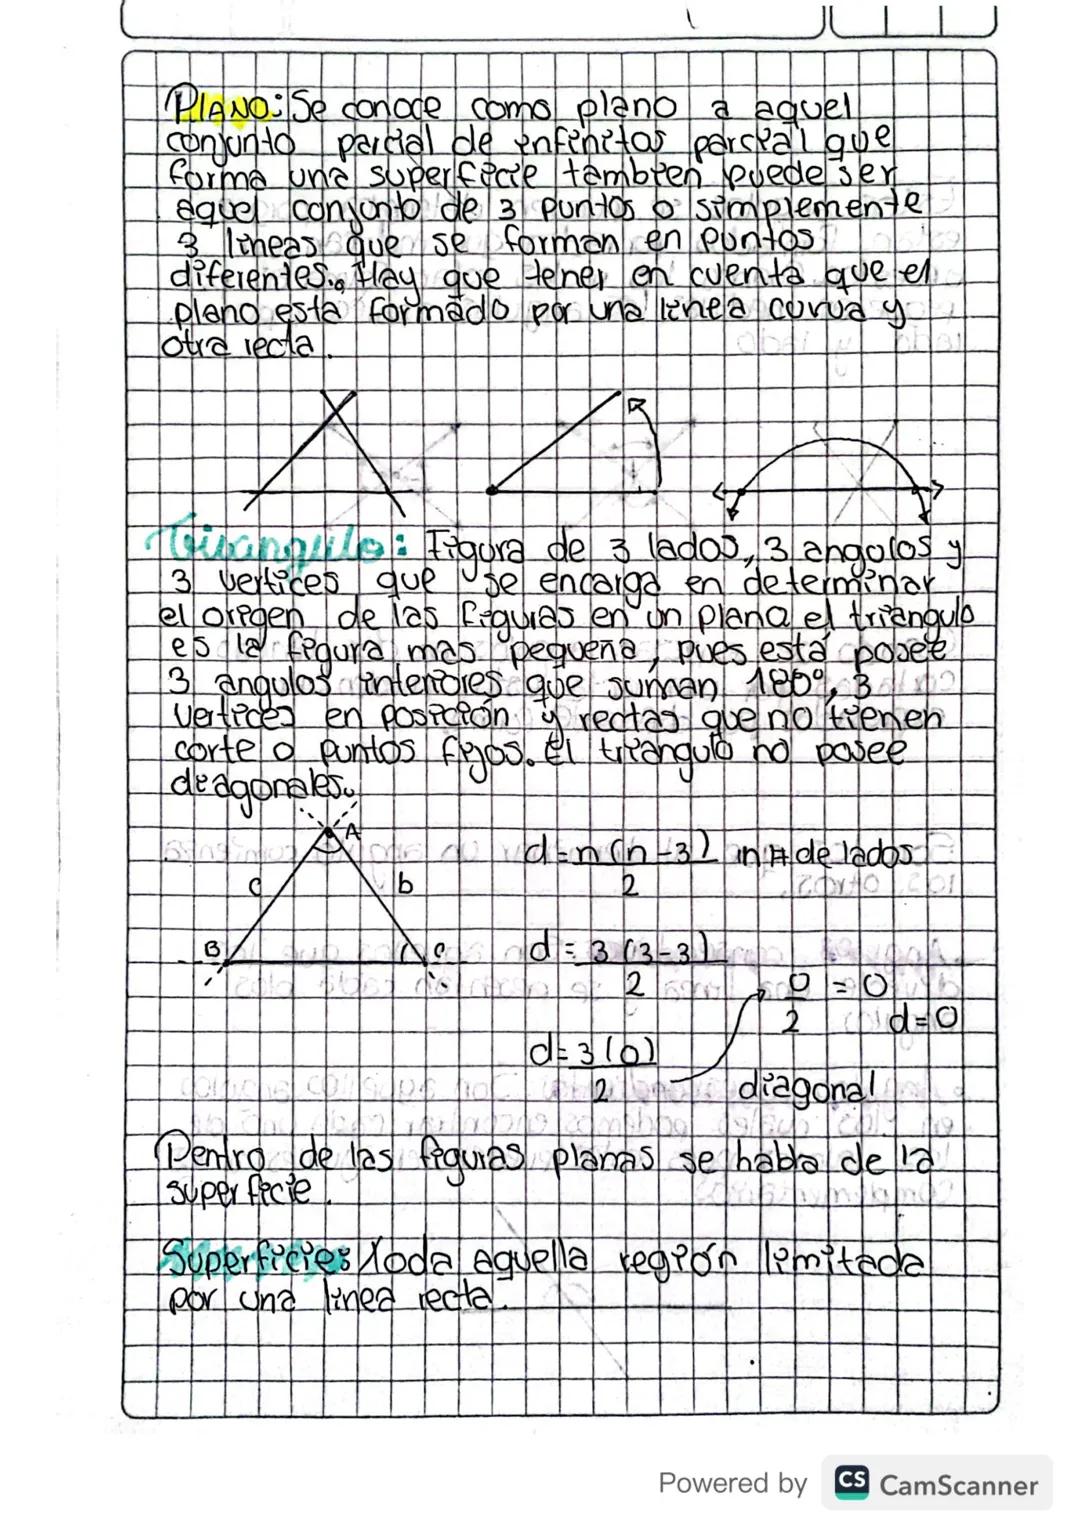 PLANO: Se conoce como plano a aquel
conjunto parcial de infinitos parcial que
forma una superficie tambien puede ser
aquel conjunto de 3 puntos o simplemente
3 lineas que se forman en puntos
diferentes. Hay que tener en cuenta que el
plano esta formado por una linea curva y
otra recta.
Triangulo: Figura de 3 lados, 3 angulos y
3 vertices que se encarga en determinar
el origen de las figuras en un plano el triangulo
es la figura mas pequeña, pues está posee
3 angulos interiores que suman 180°, 3
vertices en posición y rectas que no tienen
corte o puntos fijos. El triangulo no posee
diagonales.
A
c b
B C
d = n(n-3) in # de lados
2
d = 3(3-3)
2
0 = 0
2 d=0
d= 3(0)
2
diagonal
Dentro de las figuras planas se habla de la
superficie.
Superficie: Toda aquella región limitada
por una linea recta.
Powered by CS CamScanner